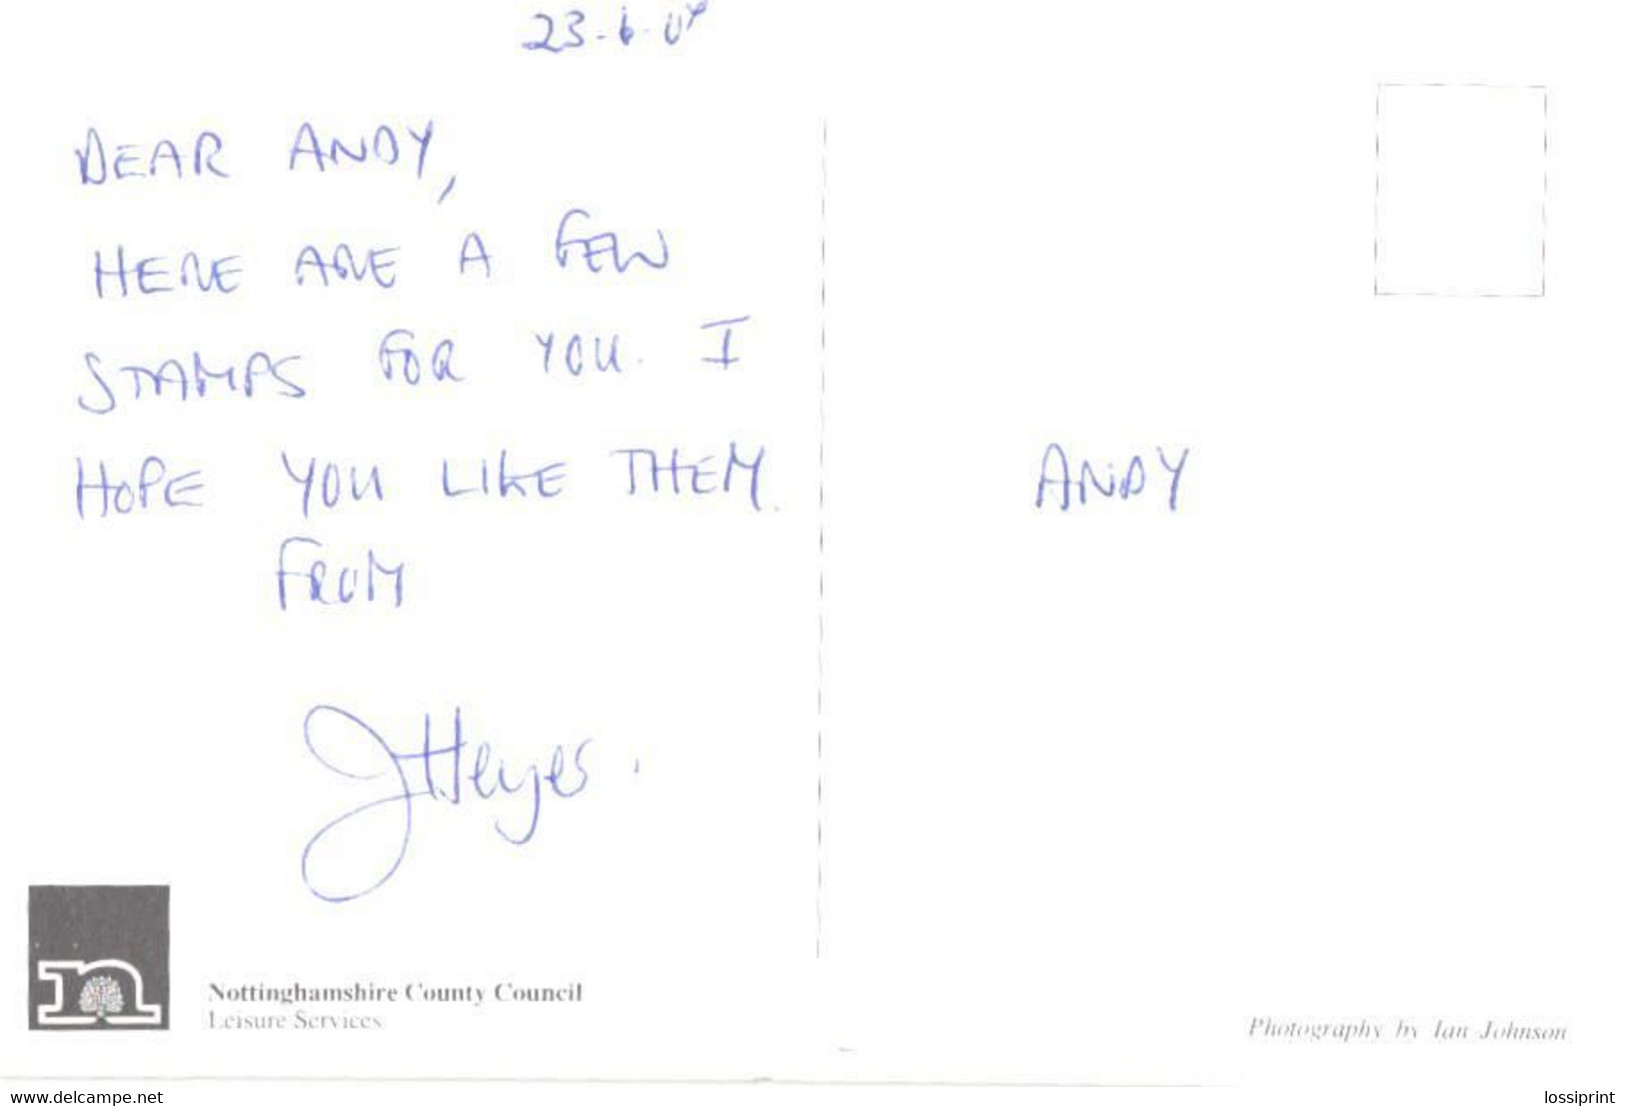 23-6-04
DEAR ANDY,
HERE ARE A FEW
STAMPS FOR YOU. I
HOPE YOU LIKE THEM.
FROM
J Heyes.
ANDY
n
Nottinghamshire County Council
Leisure Services
Photography by Ian Johnson
www.delcampe.net
lossiprint